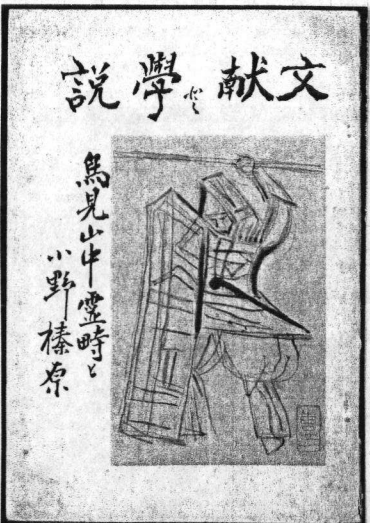 文献と學說
鳥見山中靈畤と
小野榛原